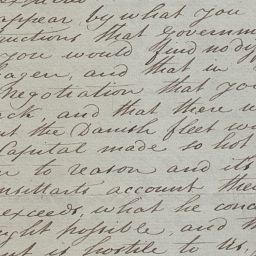 appear, by what you
uctions that Governm
you would find no dif
agen, and that in
negotiation that you
ck, and that there w
t the Danish fleet w
Capital made so hot
to reason and it's
account then
exceeds, what he conc
ght possible, and th
t is hostile to Us,